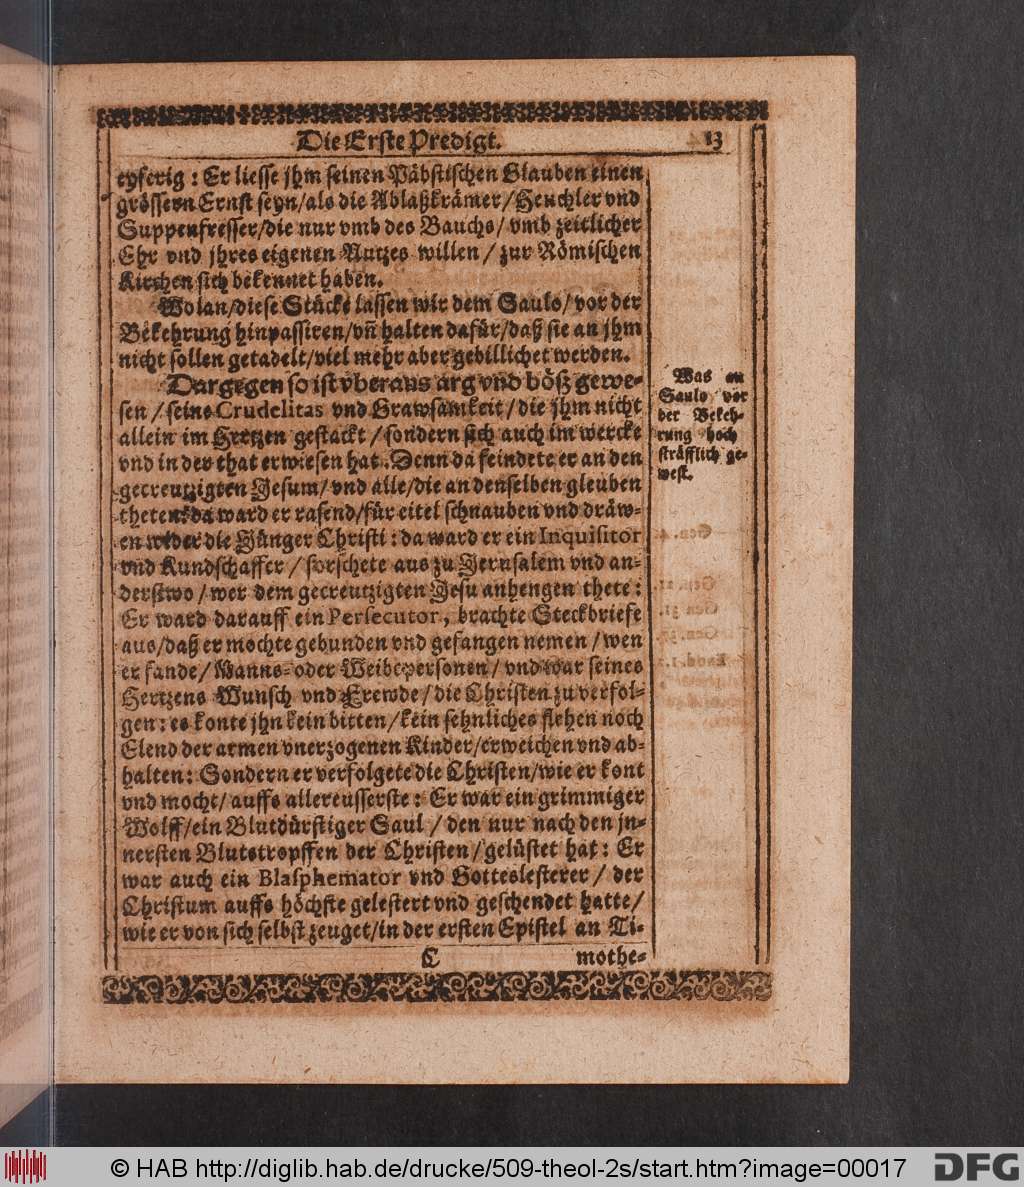 Die Erste Predigt. 13
eyferig : Er liesse jhm seinen Päbstischen Glauben einen
grössern Ernst seyn/als die Ablaßkrämer/Heuchler vnd
Suppenfresser/die nur vmb des Bauchs/ vmb zeitlicher
Ehr vnd jhres eigenen Nutzes willen / zur Römischen
Kirchen sich bekennet haben.
Wolan/diese Stücke lassen wir dem Saulo/ vor der
Bekehrung hinpassiren/vñ halten dafür/daß sie an jhm
nicht sollen getadelt/viel mehr aber gebillichet werden.
Dargegen so ist vberaus arg vnd bößz gewe-
sen / seine Crudelitas vnd Grawsamkeit / die jhm nicht
allein im Hertzen gestackt / sondern sich auch im wercke
vnd in der that erwiesen hat. Denn da feindete er an den
gecreutzigten Jesum/ vnd alle/die an denselben gleuben
theten: da ward er rasend/für eitel schnauben vnd dräw-
en wider die Jünger Christi : da ward er ein Inquisitor
vnd Kundschaffer / forschete aus zu Jerusalem vnd an-
derstwo / wer dem gecreutzigten Jesu anhengen thete :
Er ward darauff ein Persecutor, brachte Steckbriefe
aus/daß er mochte gebunden vnd gefangen nemen / wen
er fande/ Manns- oder Weibspersonen/ vnd war seines
Hertzens Wunsch vnd Frewde/ die Christen zu verfol-
gen : es konte jhn kein bitten/ kein sehnliches flehen noch
Elend der armen vnerzogenen Kinder/erweichen vnd ab-
halten: Sondern er verfolgete die Christen/wie er kont
vnd mocht/ auffs allereusserste : Er war ein grimmiger
Wolff/ein Blutdürstiger Saul / den nur nach den jn-
nersten Blutstropffen der Christen/ gelüstet hat : Er
war auch ein Blasphemator vnd Gotteslesterer / der
Christum auffs höchste gelestert vnd geschendet hatte/
wie er von sich selbst zeuget/in der ersten Epistel an Ti-
C mothe-
Was an
Saulo vor
der Bekeh-
rung hoch
sträfflich ge-
west.
© HAB http://diglib.hab.de/drucke/509-theol-2s/start.htm?image=00017
DFG